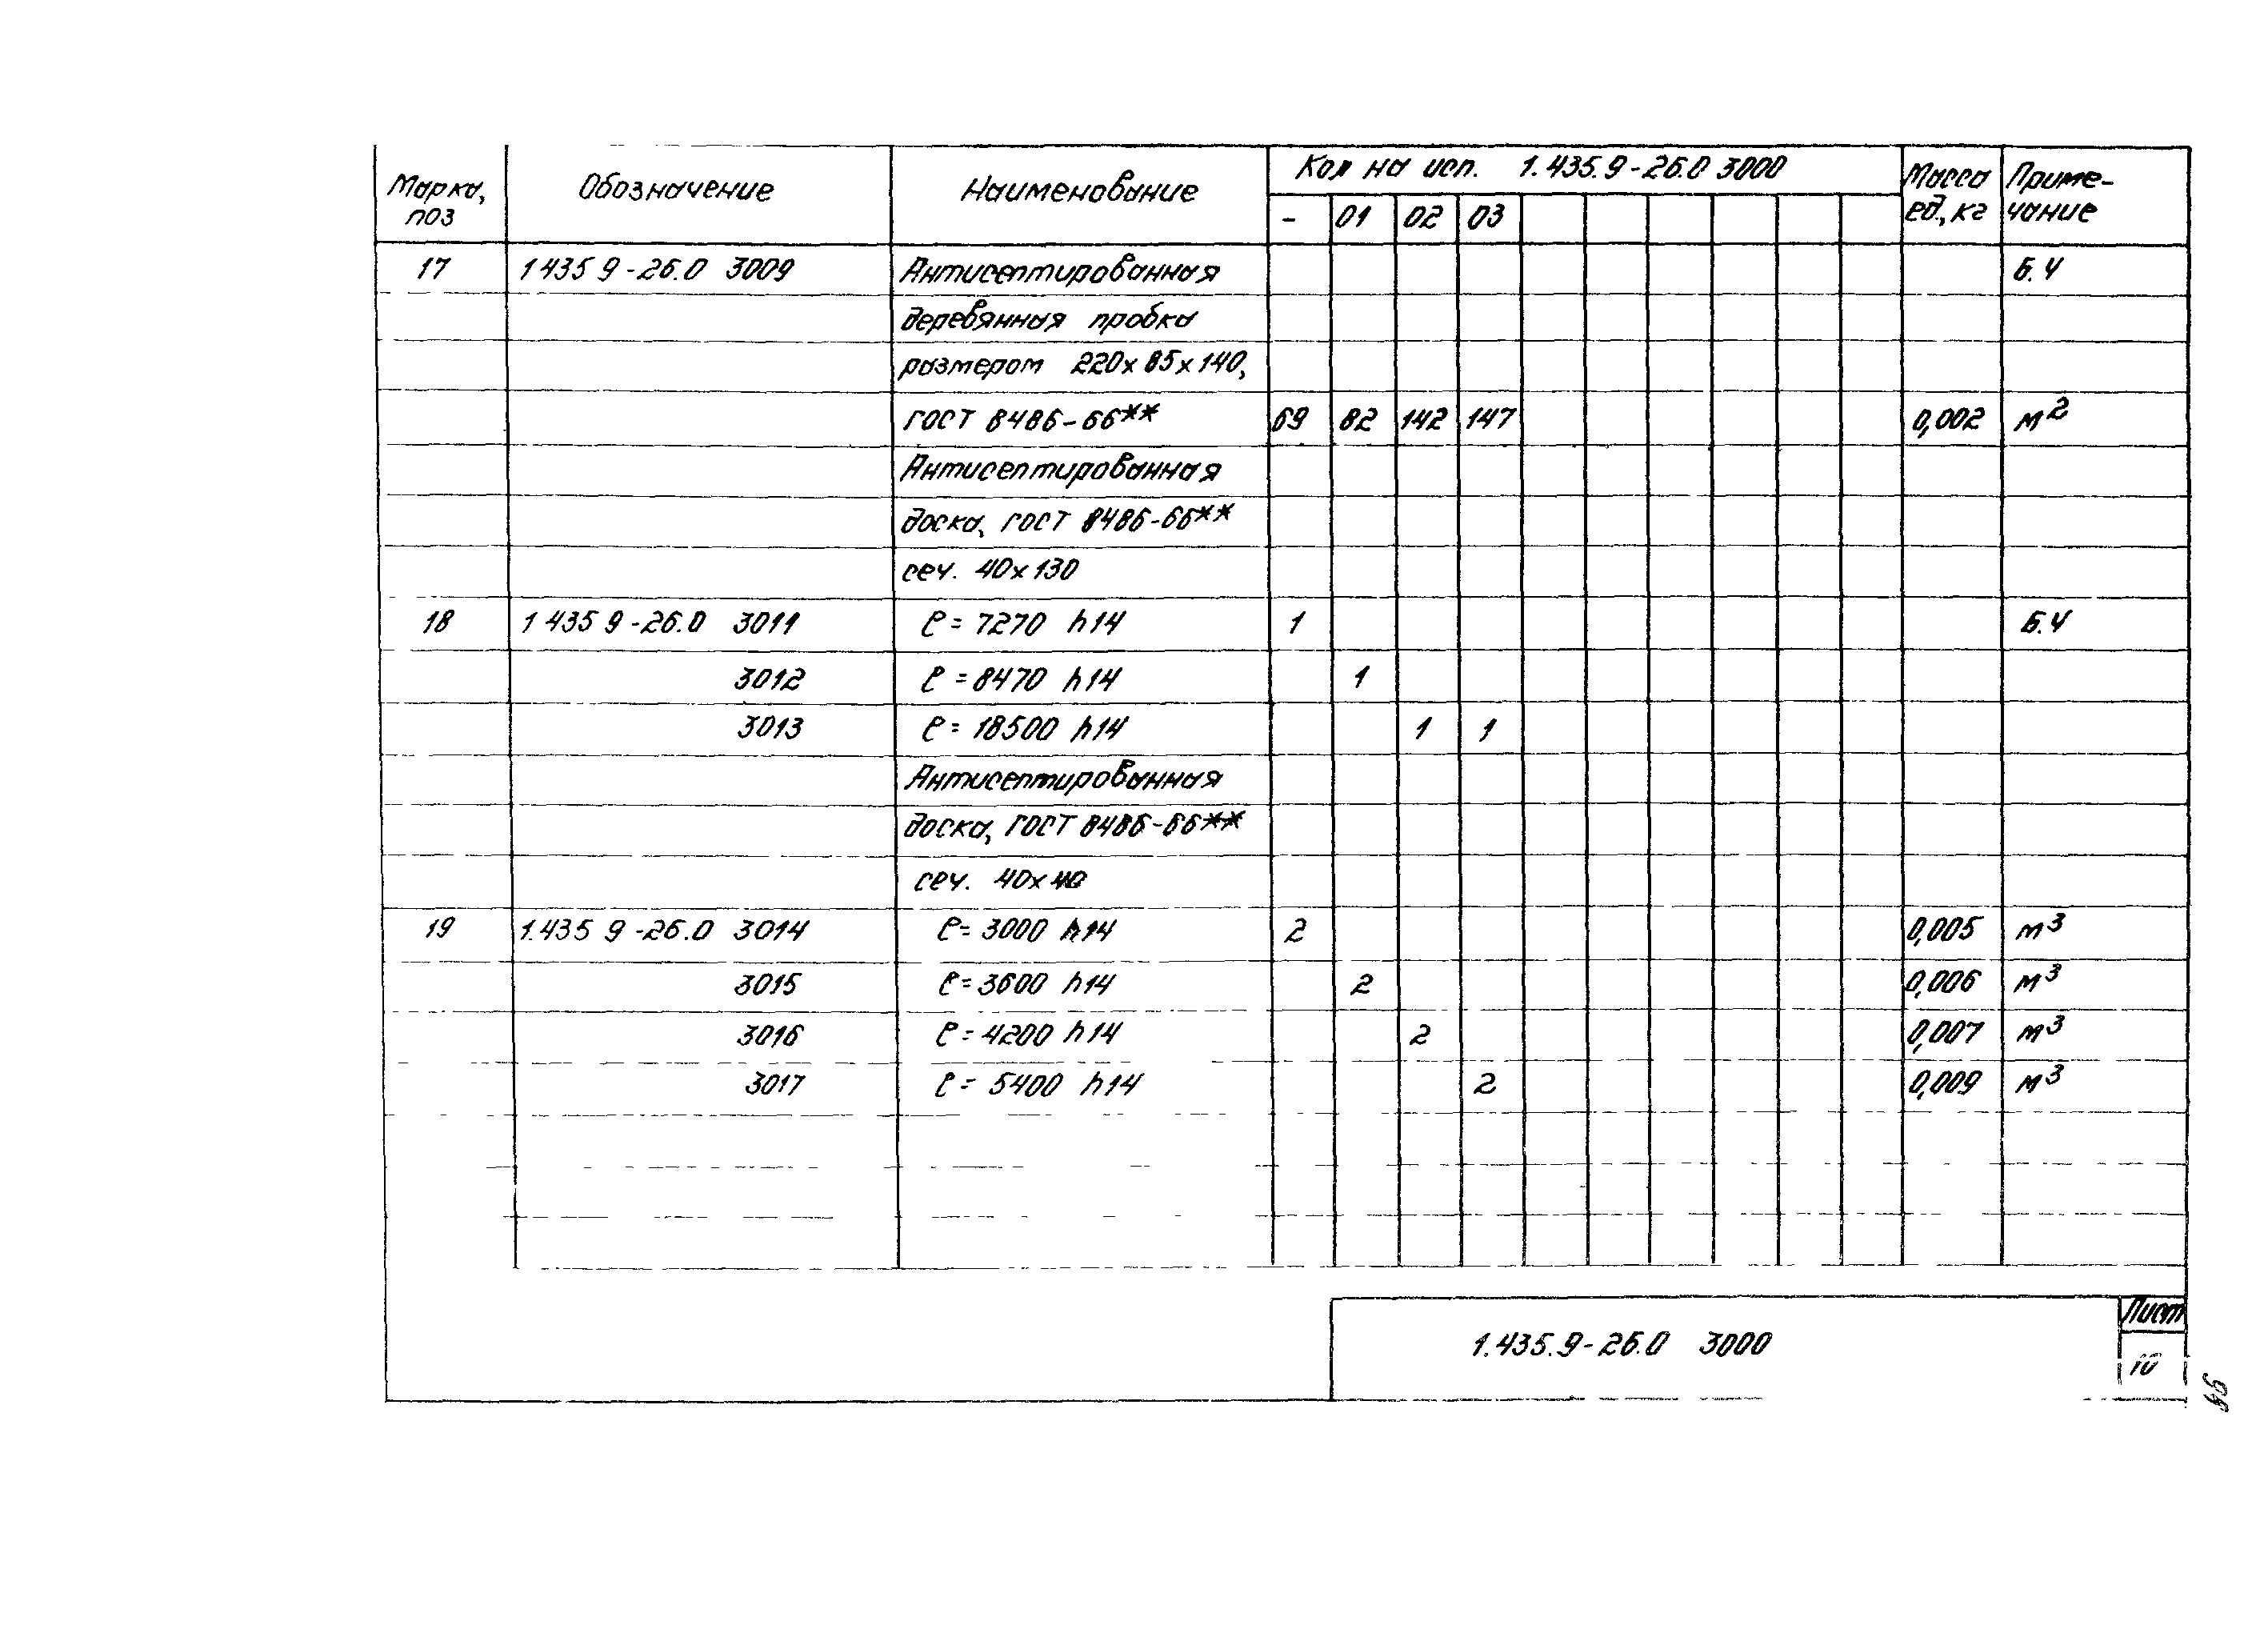 Марка, поз Обозначение Наименование Кол на исп. 1.435.9-26.0 3000 Масса ед., кг Приме-чание
- 01 02 03
17 1 435 9-26.0 3009 Антисептированная Б.Ч
деревянная пробка
размером 220х85х140,
ГОСТ 8486-66** 69 82 142 147 0,002 м2
Антисептированная
доска, ГОСТ 8486-66**
сеч. 40х130
18 1 435 9-26.0 3011 ℓ= 7270 h14 1 Б.Ч
3012 ℓ=8470 h14 1
3013 ℓ= 18500 h14 1 1
Антисептированная
доска, ГОСТ 8486-66**
сеч. 40х40
19 1.435 9-26.0 3014 ℓ=3000 h14 2 0,005 м3
3015 ℓ=3600 h14 2 0,006 м3
3016 ℓ=4200 h14 2 0,007 м3
3017 ℓ= 5400 h14 2 0,009 м3
1.435.9-26.0 3000
Лист
10